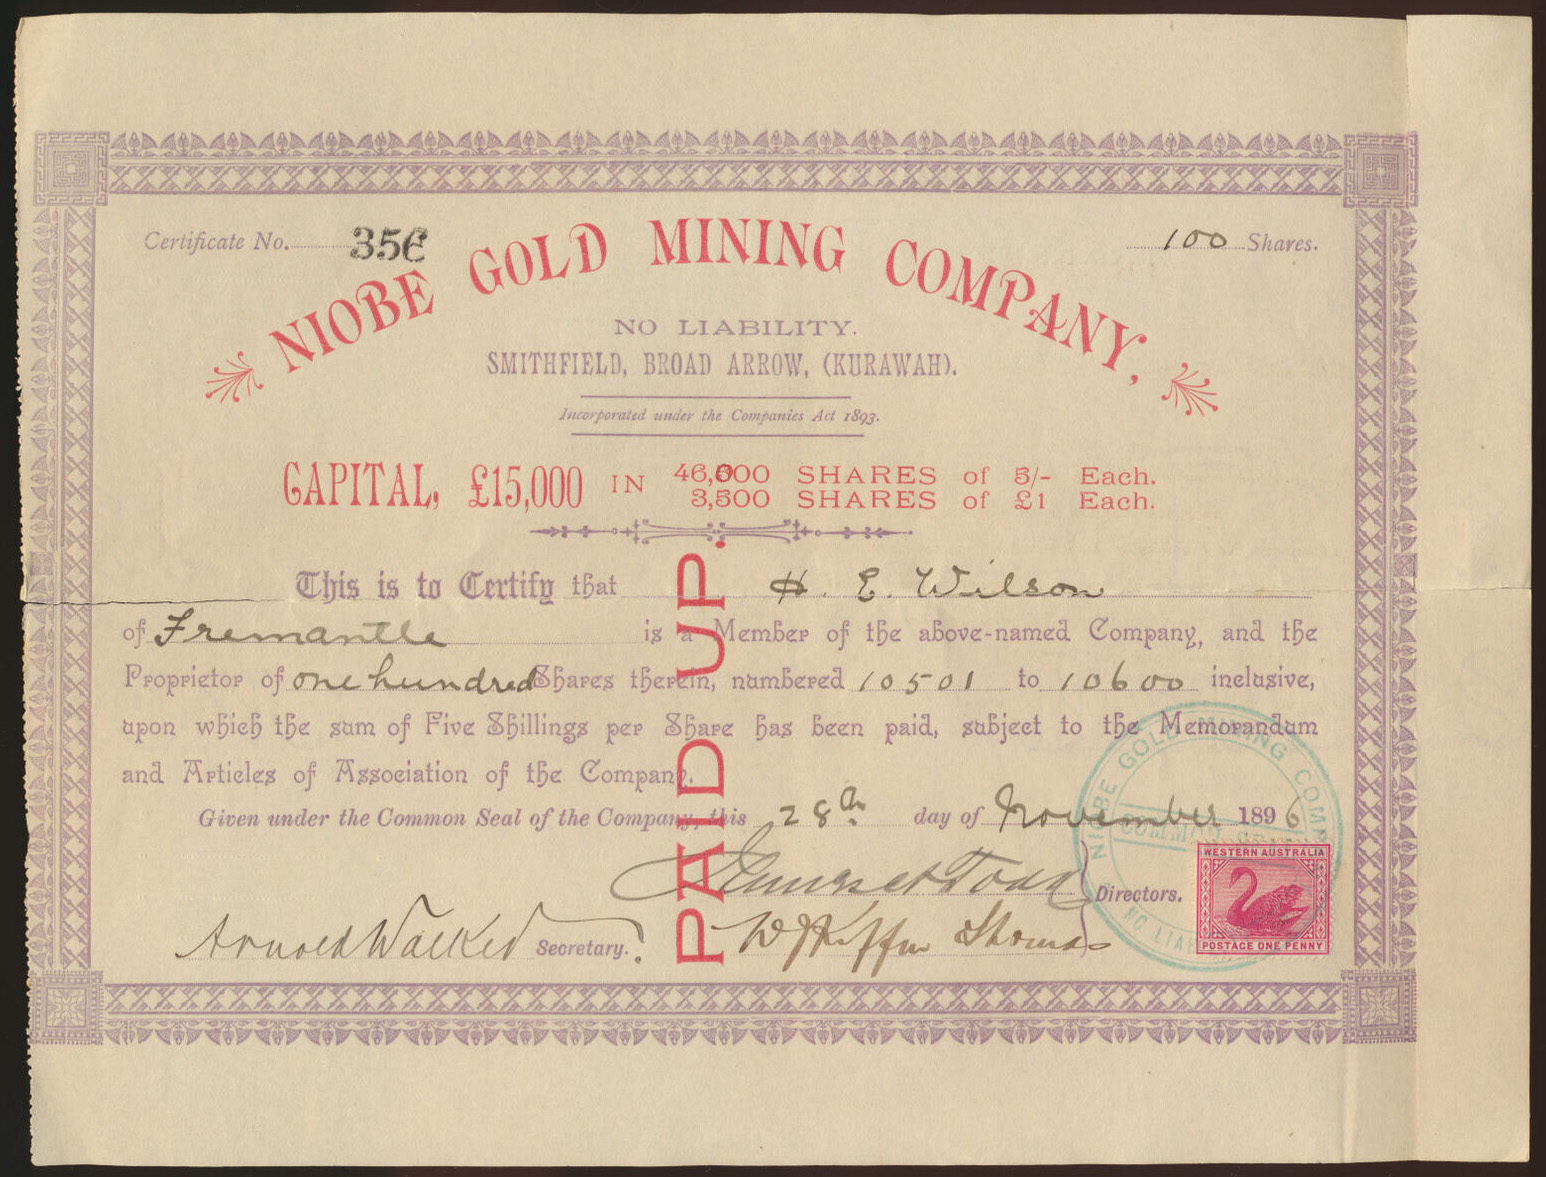 Certificate No. 356
100 Shares.
NIOBE GOLD MINING COMPANY,
NO LIABILITY.
SMITHFIELD, BROAD ARROW, (KURAWAH).
Incorporated under the Companies Act 1893.
CAPITAL, £15,000 IN 46,000 SHARES of 5/- Each.
3,500 SHARES of £1 Each.
PAID UP.
This is to Certify that H. E. Wilson
of Fremantle is a Member of the above-named Company, and the
Proprietor of one hundred Shares therein, numbered 10501 to 10600 inclusive,
upon which the sum of Five Shillings per Share has been paid, subject to the Memorandum
and Articles of Association of the Company.
Given under the Common Seal of the Company, this 28th day of November 1896
Todd
Directors.
Arnold Walker Secretary.
Thomas
NIOBE GOLD MINING COMP
COMMON
NO LIA
WESTERN AUSTRALIA
POSTAGE ONE PENNY